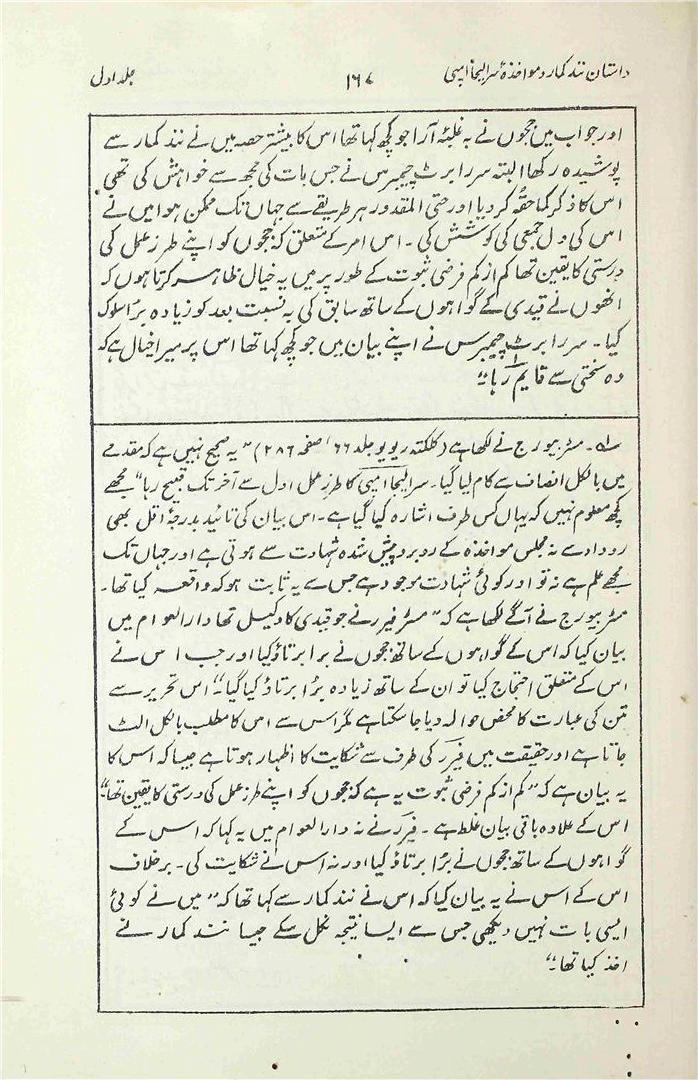 داستان نند کمار و مواخذۂ سر الیجا امپی ۱۶۷ جلد اول
اور جواب میں ججوں نے بہ غلبۂ آرا جو کچھ کہا تھا اس کا بیشتر حصہ میں نے نند کمار سے
پوشیدہ رکھا البتہ سر رابرٹ چیمبرس نے جس بات کی مجھ سے خواہش کی تھی
اس کا ذکر کما حقہٗ کر دیا اور حتی المقدور ہر طریقے سے جہاں تک ممکن ہوا میں نے
اس کی دل جمعی کی کوشش کی۔ اس امر کے متعلق کہ ججوں کو اپنے طرز عمل کی
درستی کا یقین تھا کم از کم فرضی ثبوت کے طور پر میں یہ خیال ظاہر کرتا ہوں کہ
انھوں نے قیدی کے گواہوں کے ساتھ سابق کی بہ نسبت بعد کو زیادہ برا سلوک
کیا۔ سر رابرٹ چیمبرس نے اپنے بیان میں جو کچھ کہا تھا اس پر میرا خیال ہے کہ
وہ سختی سے قایم رہا۔"
۱؎۔ مسٹر بیورج نے لکھا ہے (کلکتہ ریویو جلد ۶۶، صفحہ ۲۸۶) "یہ صحیح نہیں ہے کہ مقدمے
میں بالکل انصاف سے کام لیا گیا۔ سر الیجا امپی کا طرز عمل اول سے آخر تک قبیح رہا" مجھے
کچھ معلوم نہیں کہ یہاں کس طرف اشارہ کیا گیا ہے۔ اس بیان کی تائید بدرجۂ اقل بھی
روداد سے نہ مجلس مواخذہ کے روبرو پیش شدہ شہادت سے ہوتی ہے اور جہاں تک
مجھے علم ہے نہ تو اور کوئی شہادت موجود ہے جس سے یہ ثابت ہو کہ واقعہ کیا تھا۔
مسٹر بیورج نے آگے لکھا ہے کہ "مسٹر فیرر نے جو قیدی کا وکیل تھا دارالعوام میں
بیان کیا کہ اس کے گواہوں کے ساتھ ججوں نے برا برتاؤ کیا اور جب اس نے
اس کے متعلق احتجاج کیا تو ان کے ساتھ زیادہ برا برتاؤ کیا گیا"۔ اس تحریر سے
متن کی عبارت کا محض حوالہ دیا جا سکتا ہے مگر اس سے اس کا مطلب بالکل الٹ
جاتا ہے اور حقیقت میں فیرر کی طرف سے شکایت کا اظہار ہوتا ہے جیسا کہ اس کا
یہ بیان ہے کہ "کم از کم فرضی ثبوت یہ ہے کہ ججوں کو اپنے طرز عمل کی درستی کا یقین تھا"۔
اس کے علاوہ باقی بیان غلط ہے۔ فیرر نے نہ دارالعوام میں یہ کہا کہ اس کے
گواہوں کے ساتھ ججوں نے برا برتاؤ کیا اور نہ اس نے شکایت کی۔ برخلاف
اس کے اس نے یہ بیان کیا کہ اس نے نند کمار سے کہا تھا کہ "میں نے کوئی
ایسی بات نہیں دیکھی جس سے ایسا نتیجہ نکل سکے جیسا نند کمار نے
اخذ کیا تھا۔"